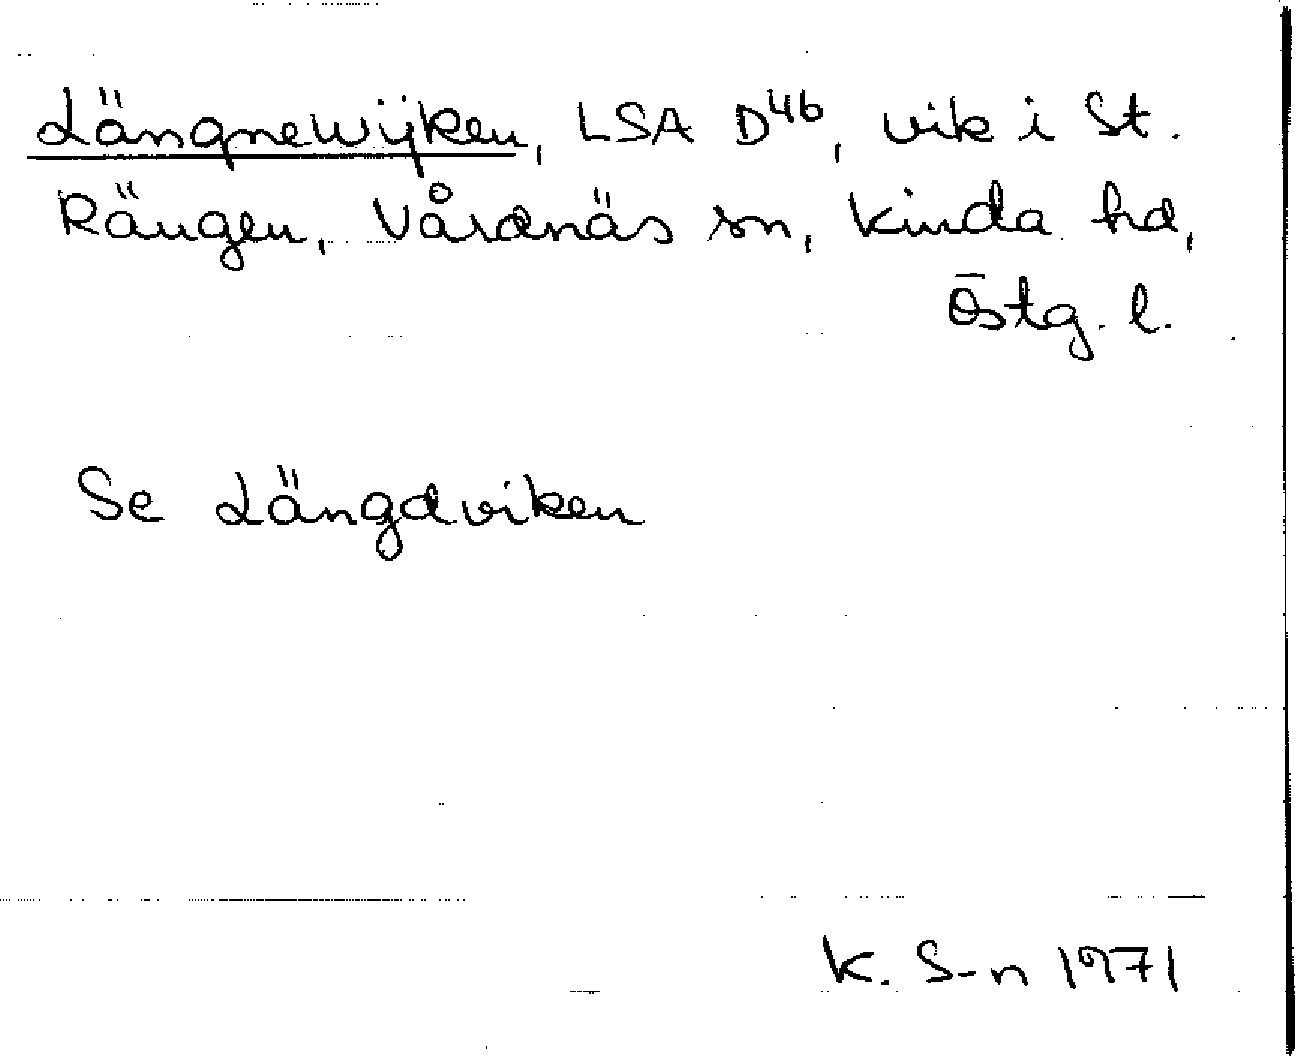 Längnewijken, LSA D46, vik i St.
Rängen, Vårdnäs sn, Kinda hd,
Östg. l.
Se Längdviken
K. S-n 1971